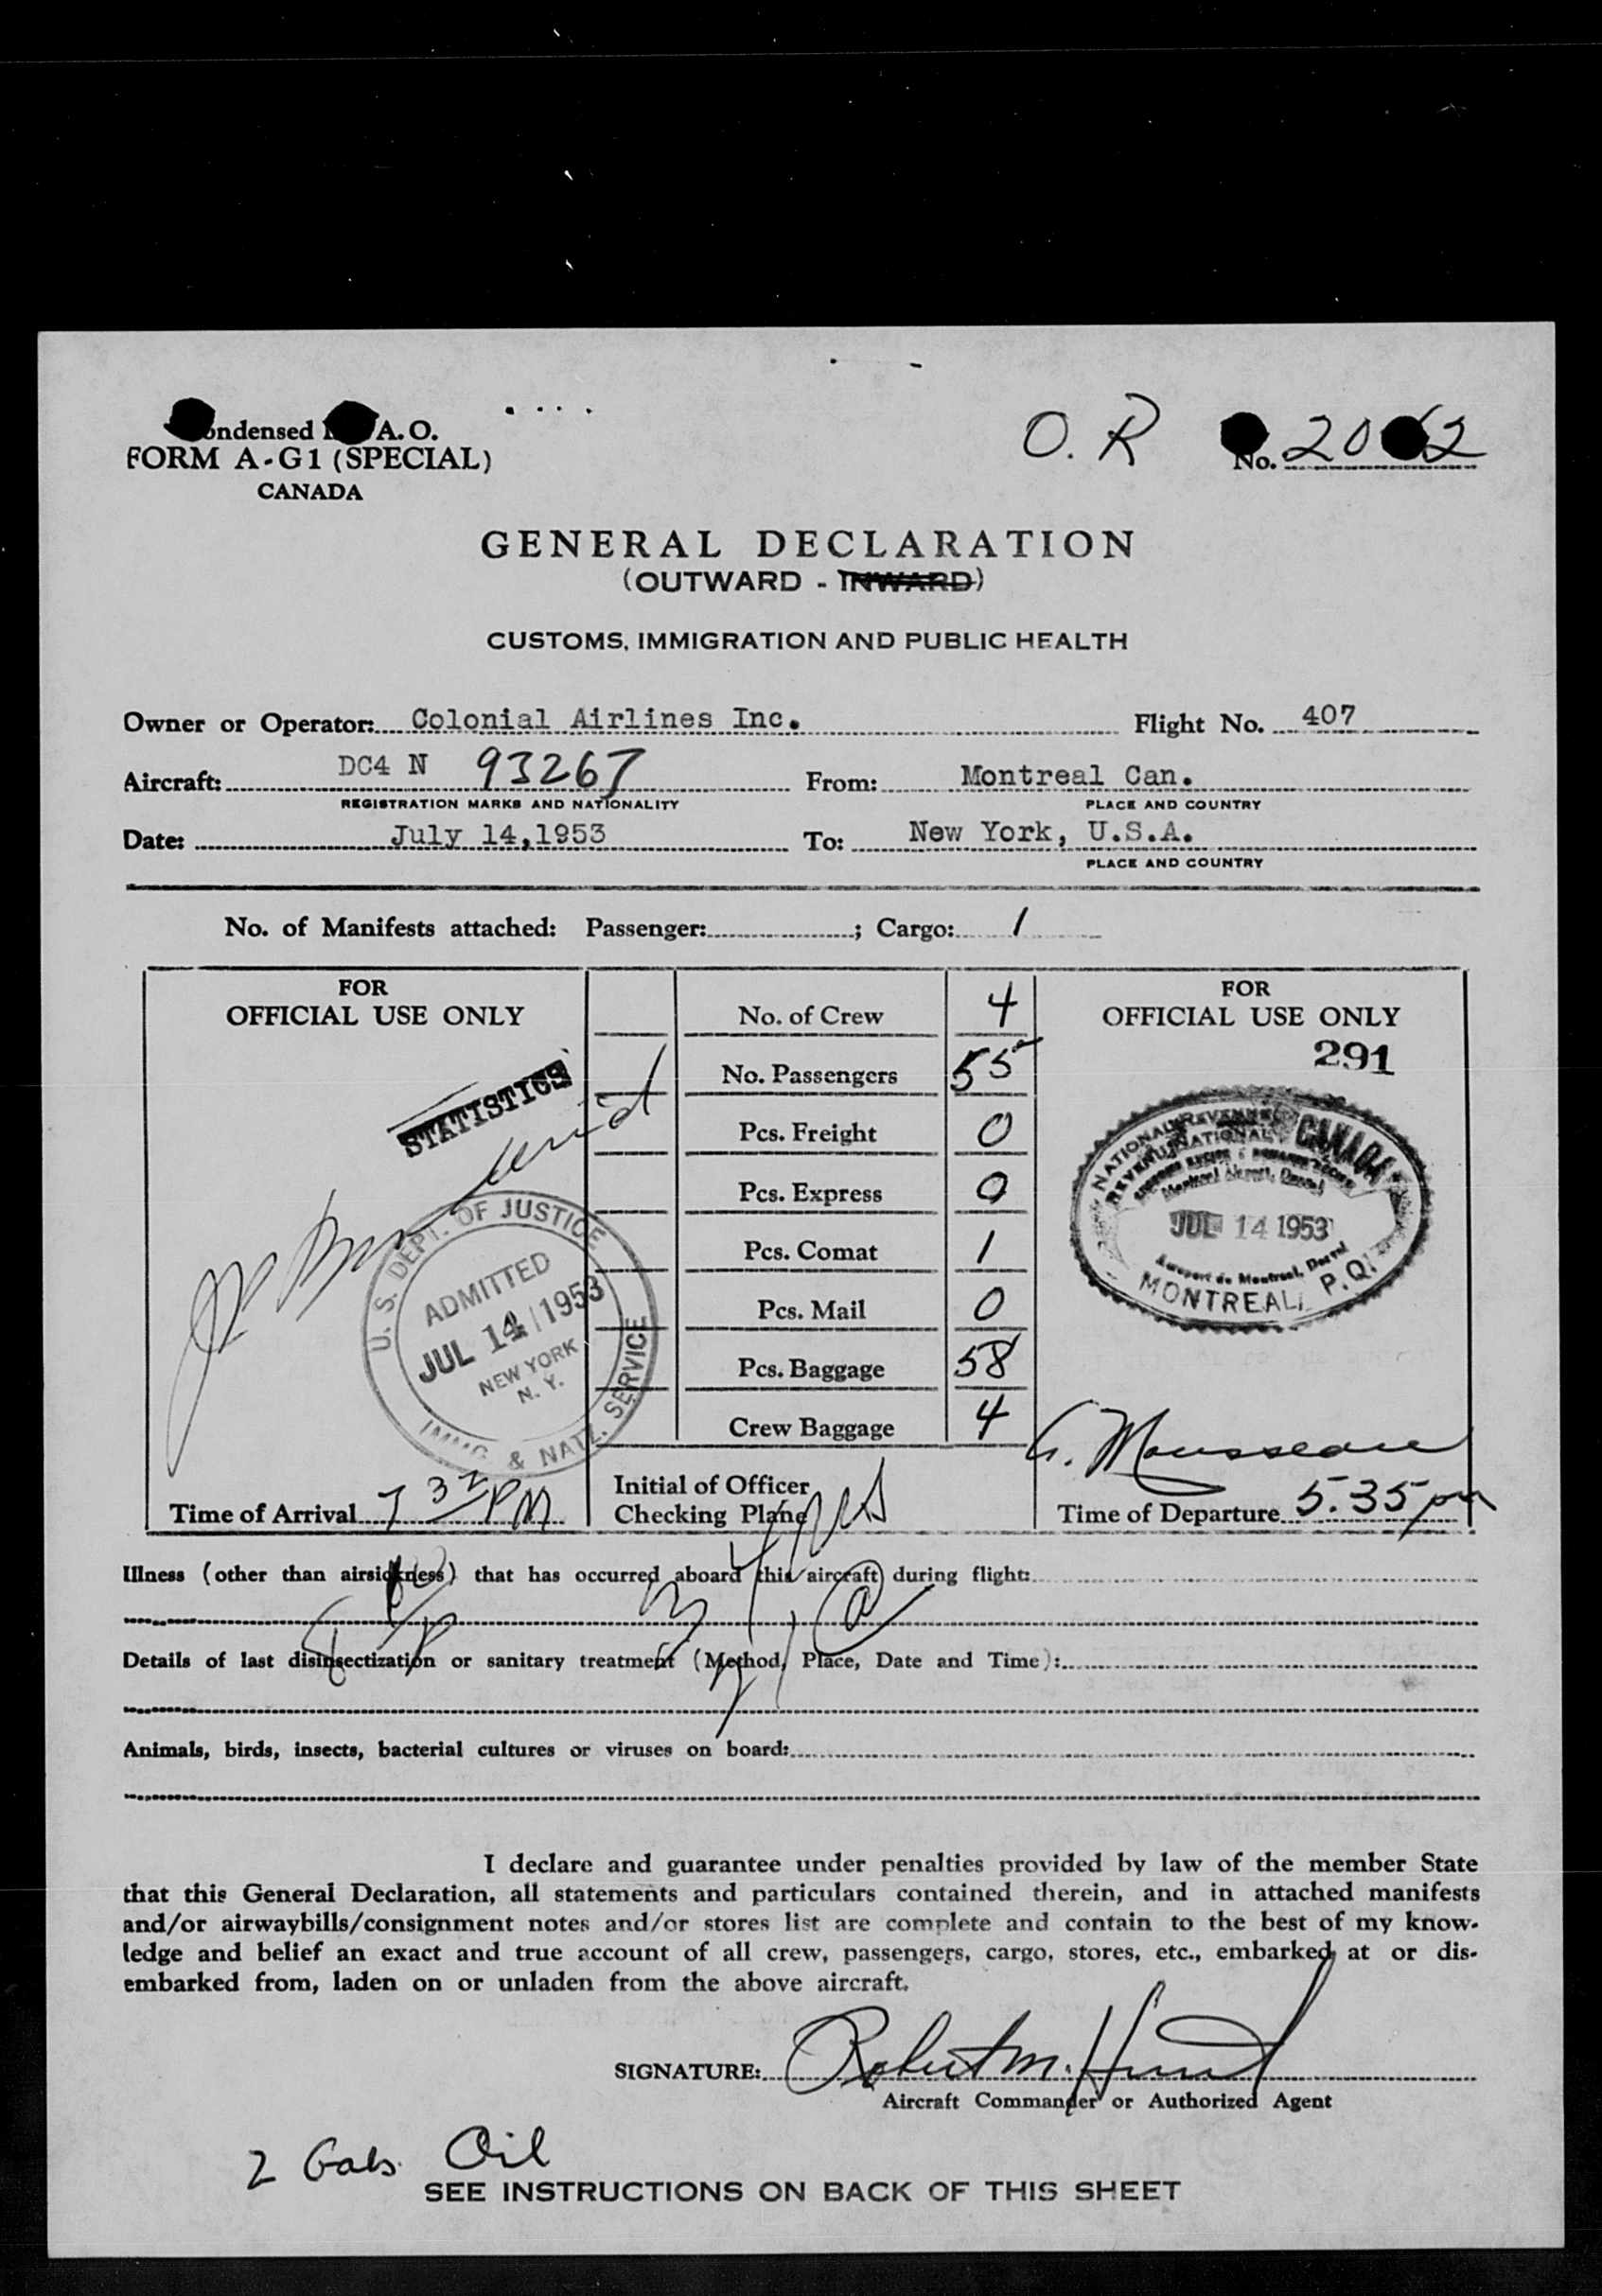 ondensed A. O.
FORM A-G1 (SPECIAL)
CANADA
O. R
No. 20 2
GENERAL DECLARATION
(OUTWARD - INWARD)
CUSTOMS, IMMIGRATION AND PUBLIC HEALTH
Owner or Operator: Colonial Airlines Inc. Flight No. 407
Aircraft: DC4 N 93267 From: Montreal Can.
REGISTRATION MARKS AND NATIONALITY PLACE AND COUNTRY
Date: July 14,1953 To: New York, U.S.A.
PLACE AND COUNTRY
No. of Manifests attached: Passenger: ; Cargo: 1
FOR
OFFICIAL USE ONLY
STATISTICS
U. S. DEPT. OF JUSTICE
ADMITTED
JUL 14 1953
NEW YORK
N. Y.
IMMG. & NATZ. SERVICE
Time of Arrival 7 32 PM
No. of Crew 4
No. Passengers 55
Pcs. Freight 0
Pcs. Express 0
Pcs. Comat 1
Pcs. Mail 0
Pcs. Baggage 58
Crew Baggage 4
Initial of Officer
Checking Plane
FOR
OFFICIAL USE ONLY
291
NATIONAL REVENUE
CANADA
REVENU NATIONAL
Montreal Airport, Dorval
JUL 14 1953
Aeroport de Montreal, Dorval
MONTREAL, P.Q.
G. Mousseau
Time of Departure 5.35 pm
Illness (other than airsickness) that has occurred aboard this aircraft during flight:
Details of last disinsectization or sanitary treatment (Method, Place, Date and Time):
Animals, birds, insects, bacterial cultures or viruses on board:
I declare and guarantee under penalties provided by law of the member State
that this General Declaration, all statements and particulars contained therein, and in attached manifests
and/or airwaybills/consignment notes and/or stores list are complete and contain to the best of my know-
ledge and belief an exact and true account of all crew, passengers, cargo, stores, etc., embarked at or dis-
embarked from, laden on or unladen from the above aircraft.
SIGNATURE: Robert M. Hurd
Aircraft Commander or Authorized Agent
2 Gals. Oil
SEE INSTRUCTIONS ON BACK OF THIS SHEET